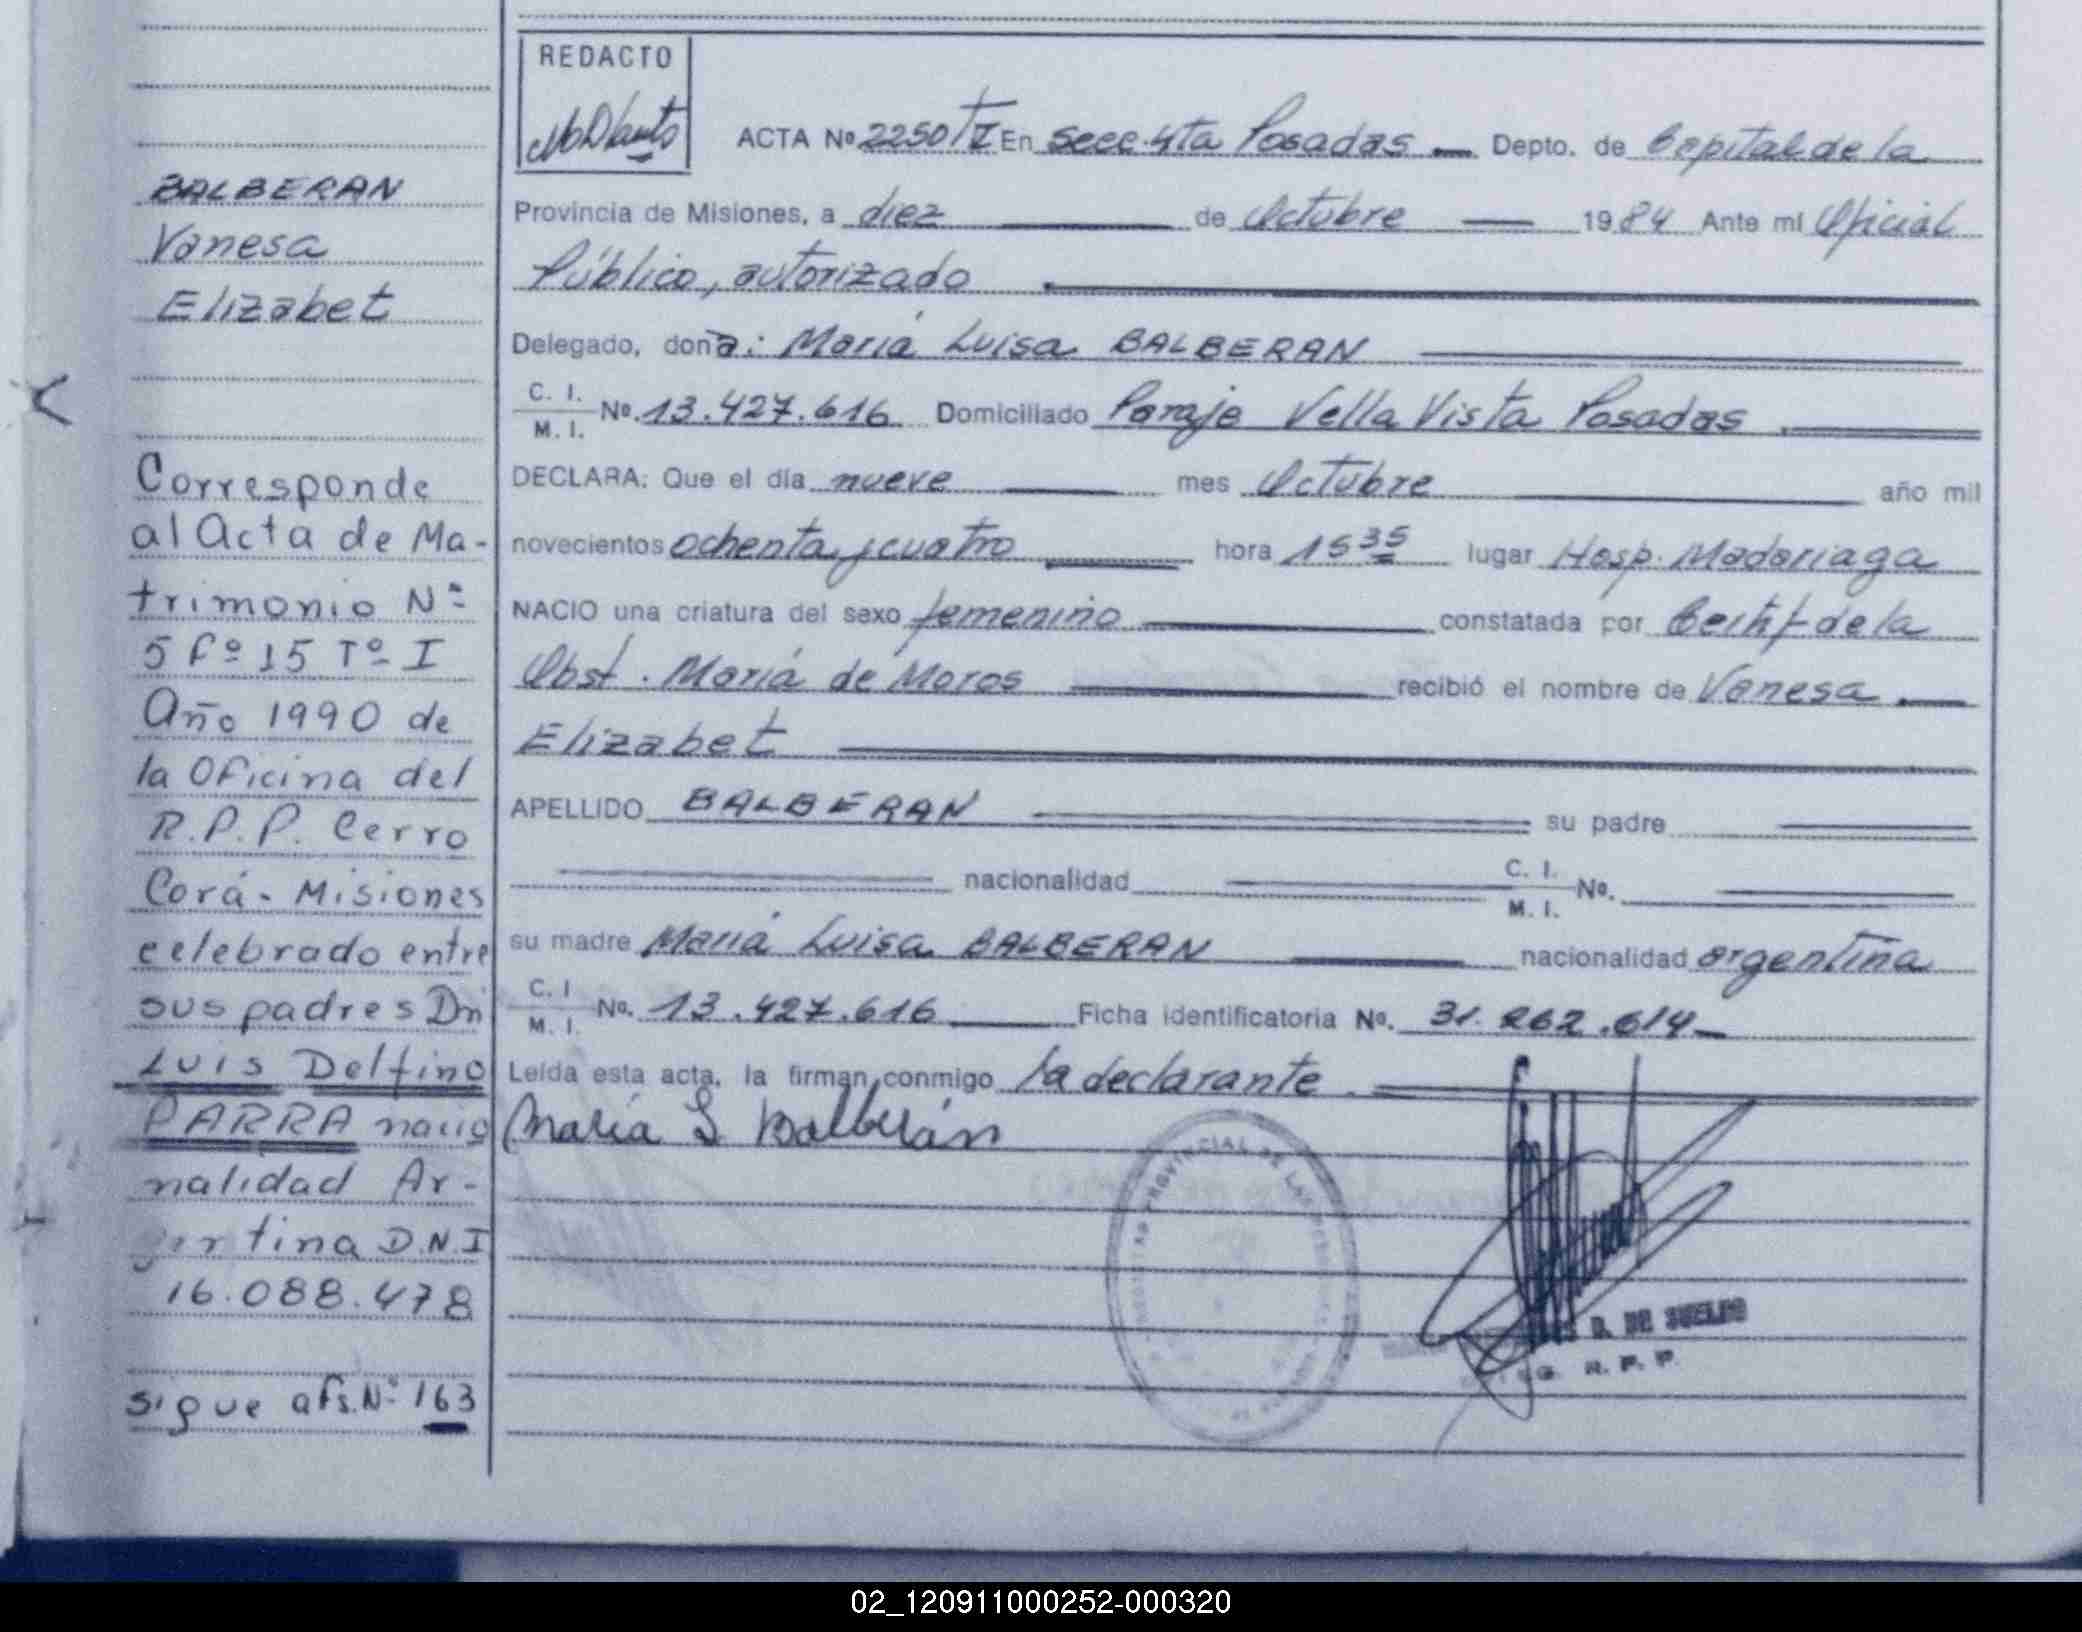 REDACTO
ACTA Nº 2250 TI En Secc. 4ta Posadas Depto. de Capital de la
Provincia de Misiones, a diez de Octubre 1984 Ante mi Oficial
Público, autorizado
Delegado, doña: María Luisa BALBERAN
C. I.
M. I.
Nº. 13.427.616 Domiciliado Paraje Vella Vista Posadas
DECLARA: Que el día nueve mes Octubre año mil
novecientos ochenta y cuatro hora 15 35 lugar Hosp. Madariaga
NACIO una criatura del sexo femenino constatada por Certif de la
Obst. María de Moros recibió el nombre de Vanesa
Elizabet
APELLIDO BALBERAN su padre
nacionalidad C. I.
M. I.
Nº.
su madre María Luisa BALBERAN nacionalidad argentina
C. I
M. I.
Nº. 13.427.616 Ficha identificatoria Nº. 31.262.614
Leída esta acta, la firman conmigo la declarante
María L Balberán
PROVINCIAL DE LAS
D. DE SUELDO
R. P. P.
BALBERAN
Vanesa
Elizabet
Corresponde
al Acta de Ma-
trimonio Nº
5 Fº 15 Tº I
Año 1990 de
la Oficina del
R.P.P. Cerro
Corá - Misiones
celebrado entre
sus padres Dn
LUIS Delfino
PARRA nacio
nalidad Ar-
gentina D.N.I
16.088.478
sigue a fs. Nº 163
02_120911000252-000320